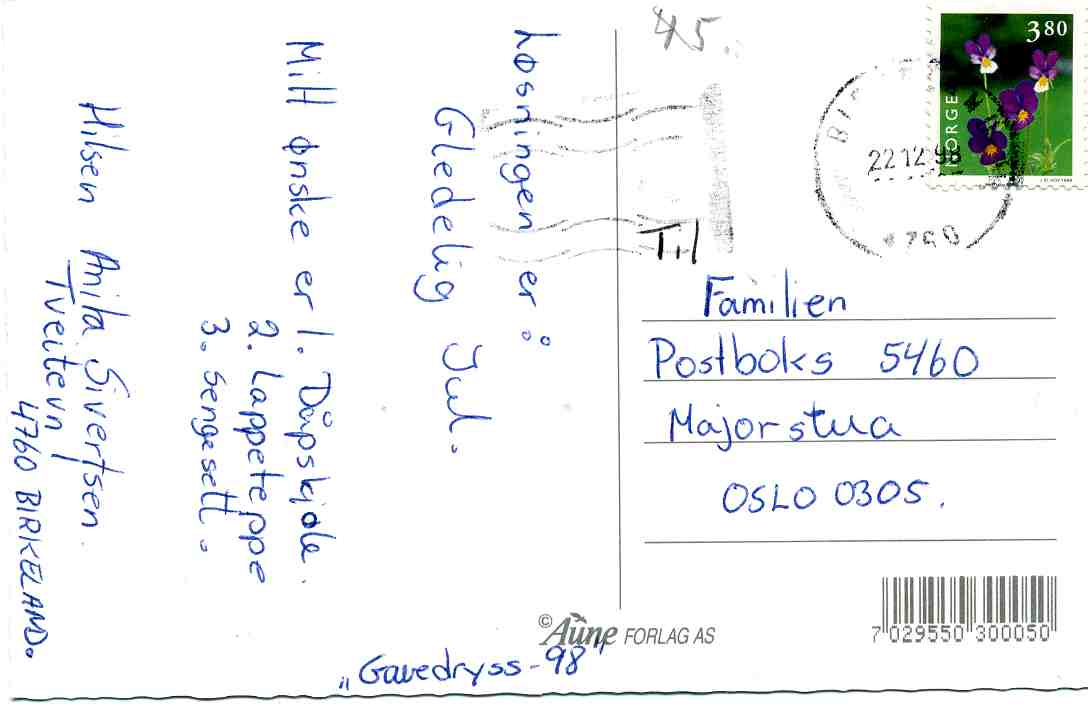 Løsningen er:
Gledelig Jul.
Mitt ønske er 1. Dåpskjole.
2. Lappeteppe
3. Sengesett.
Hilsen Anita Sivertsen.
Tveiten
4760 BIRKELAND.
45.
NORGE 3 80
22 12 98
4760
Til
Familien
Postboks 5460
Majorstua
OSLO 0305.
© Aune FORLAG AS
7 029550 300050
„Gavedryss-98"